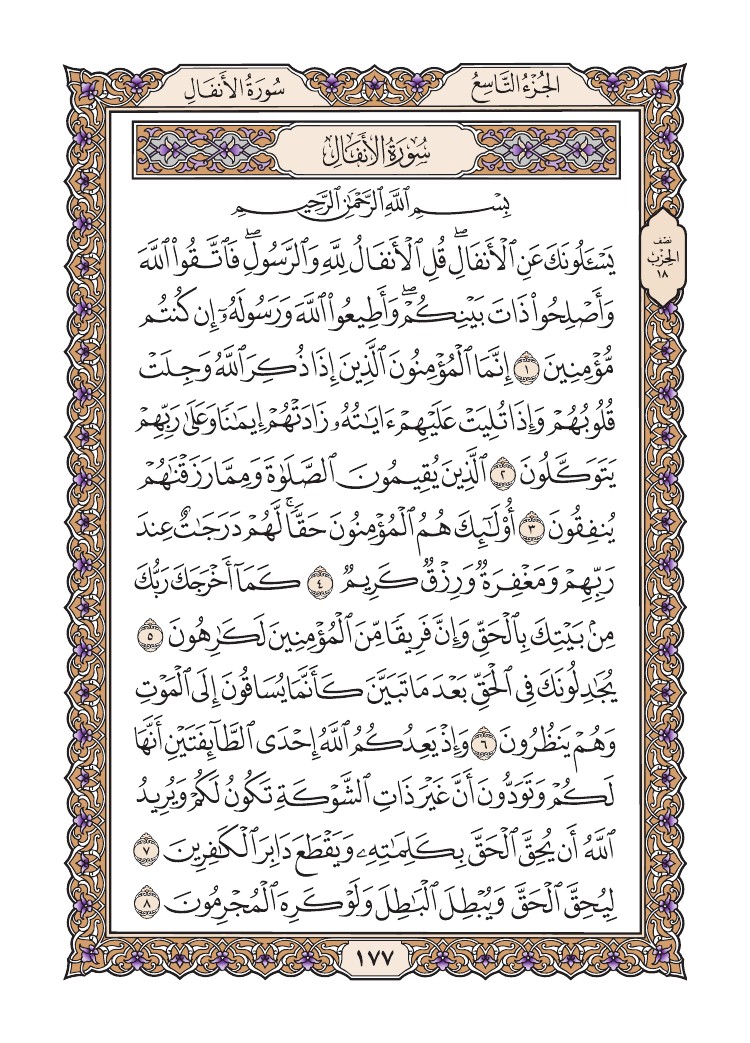 الجُزْءُ التَّاسِعُ
سُورَةُ الأَنفَالِ
سُورَةُ الأَنفَالِ
بِسْمِ ٱللَّهِ ٱلرَّحْمَٰنِ ٱلرَّحِيمِ
يَسْـَٔلُونَكَ عَنِ ٱلْأَنفَالِۖ قُلِ ٱلْأَنفَالُ لِلَّهِ وَٱلرَّسُولِۖ فَٱتَّقُوا۟ ٱللَّهَ
وَأَصْلِحُوا۟ ذَاتَ بَيْنِكُمْۖ وَأَطِيعُوا۟ ٱللَّهَ وَرَسُولَهُۥٓ إِن كُنتُم
مُّؤْمِنِينَ ١ إِنَّمَا ٱلْمُؤْمِنُونَ ٱلَّذِينَ إِذَا ذُكِرَ ٱللَّهُ وَجِلَتْ
قُلُوبُهُمْ وَإِذَا تُلِيَتْ عَلَيْهِمْ ءَايَٰتُهُۥ زَادَتْهُمْ إِيمَٰنًا وَعَلَىٰ رَبِّهِمْ
يَتَوَكَّلُونَ ٢ ٱلَّذِينَ يُقِيمُونَ ٱلصَّلَوٰةَ وَمِمَّا رَزَقْنَٰهُمْ
يُنفِقُونَ ٣ أُو۟لَٰٓئِكَ هُمُ ٱلْمُؤْمِنُونَ حَقًّاۚ لَّهُمْ دَرَجَٰتٌ عِندَ
رَبِّهِمْ وَمَغْفِرَةٌ وَرِزْقٌ كَرِيمٌ ٤ كَمَآ أَخْرَجَكَ رَبُّكَ
مِنۢ بَيْتِكَ بِٱلْحَقِّ وَإِنَّ فَرِيقًا مِّنَ ٱلْمُؤْمِنِينَ لَكَٰرِهُونَ ٥
يُجَٰدِلُونَكَ فِى ٱلْحَقِّ بَعْدَ مَا تَبَيَّنَ كَأَنَّمَا يُسَاقُونَ إِلَى ٱلْمَوْتِ
وَهُمْ يَنظُرُونَ ٦ وَإِذْ يَعِدُكُمُ ٱللَّهُ إِحْدَى ٱلطَّآئِفَتَيْنِ أَنَّهَا
لَكُمْ وَتَوَدُّونَ أَنَّ غَيْرَ ذَاتِ ٱلشَّوْكَةِ تَكُونُ لَكُمْ وَيُرِيدُ
ٱللَّهُ أَن يُحِقَّ ٱلْحَقَّ بِكَلِمَٰتِهِۦ وَيَقْطَعَ دَابِرَ ٱلْكَٰفِرِينَ ٧
لِيُحِقَّ ٱلْحَقَّ وَيُبْطِلَ ٱلْبَٰطِلَ وَلَوْ كَرِهَ ٱلْمُجْرِمُونَ ٨
نصف
الحزب
١٨
١٧٧